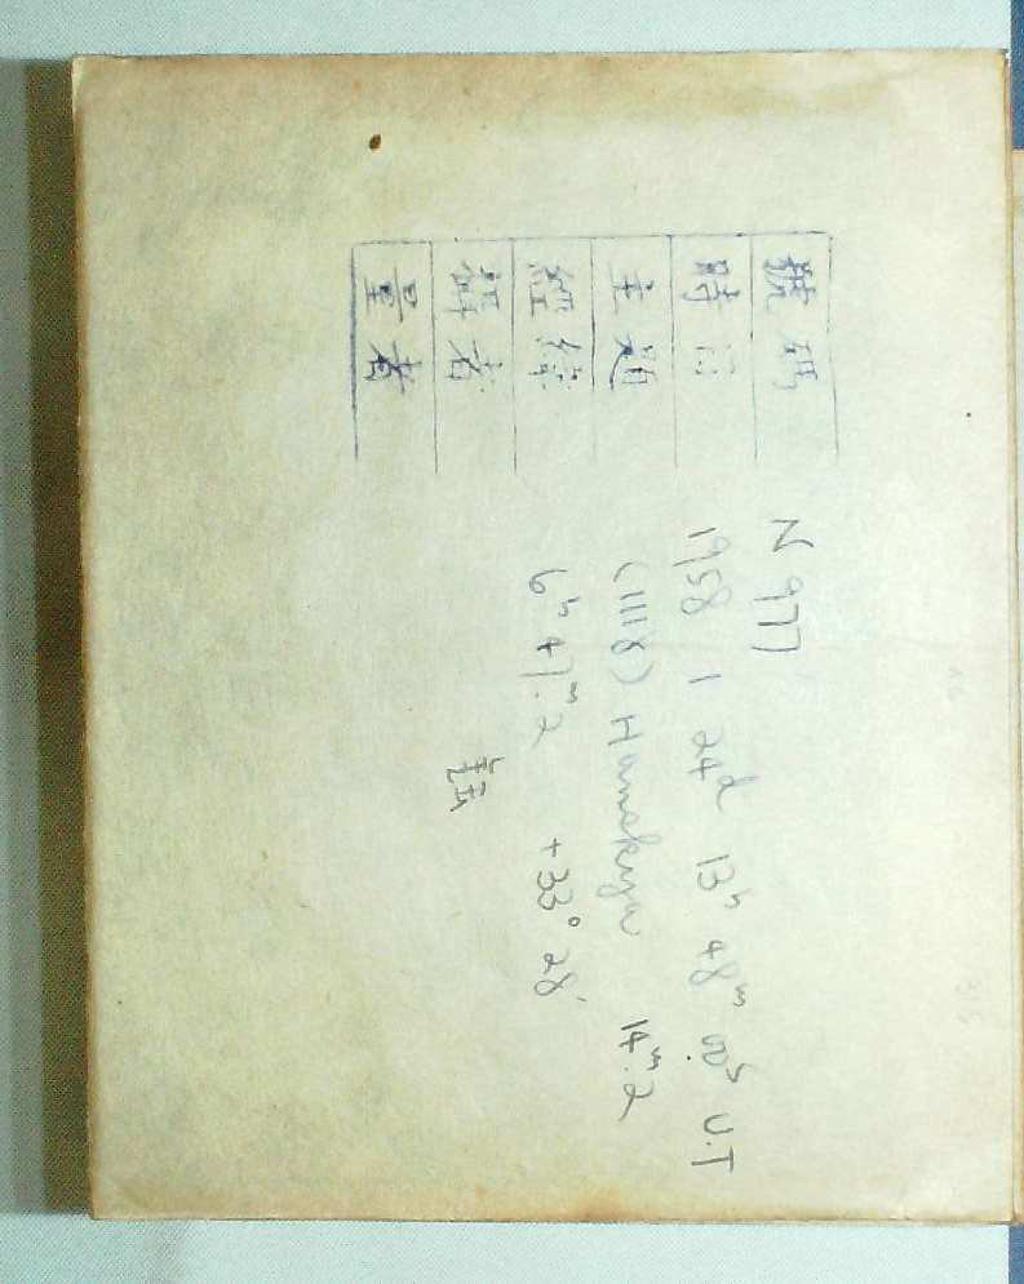 號碼 N 977
時间 1958 1 24d 13h 48m 00s U.T
主題 (1118) Hanskya 14m.2
經緯 6h 41m.2 +33° 28'
攝者
量者